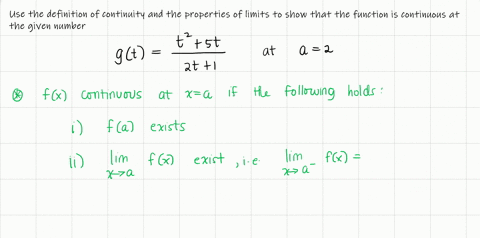 Use the definition of continuity and the properties of limits to show that the function is continuous at
the given number
g(t) = (t² + 5t)/(2t + 1) at a = 2
⊛ f(x) continuous at x=a if the following holds:
i) f(a) exists
ii) lim x→a f(x) exist, i.e. lim x→a⁻ f(x) =